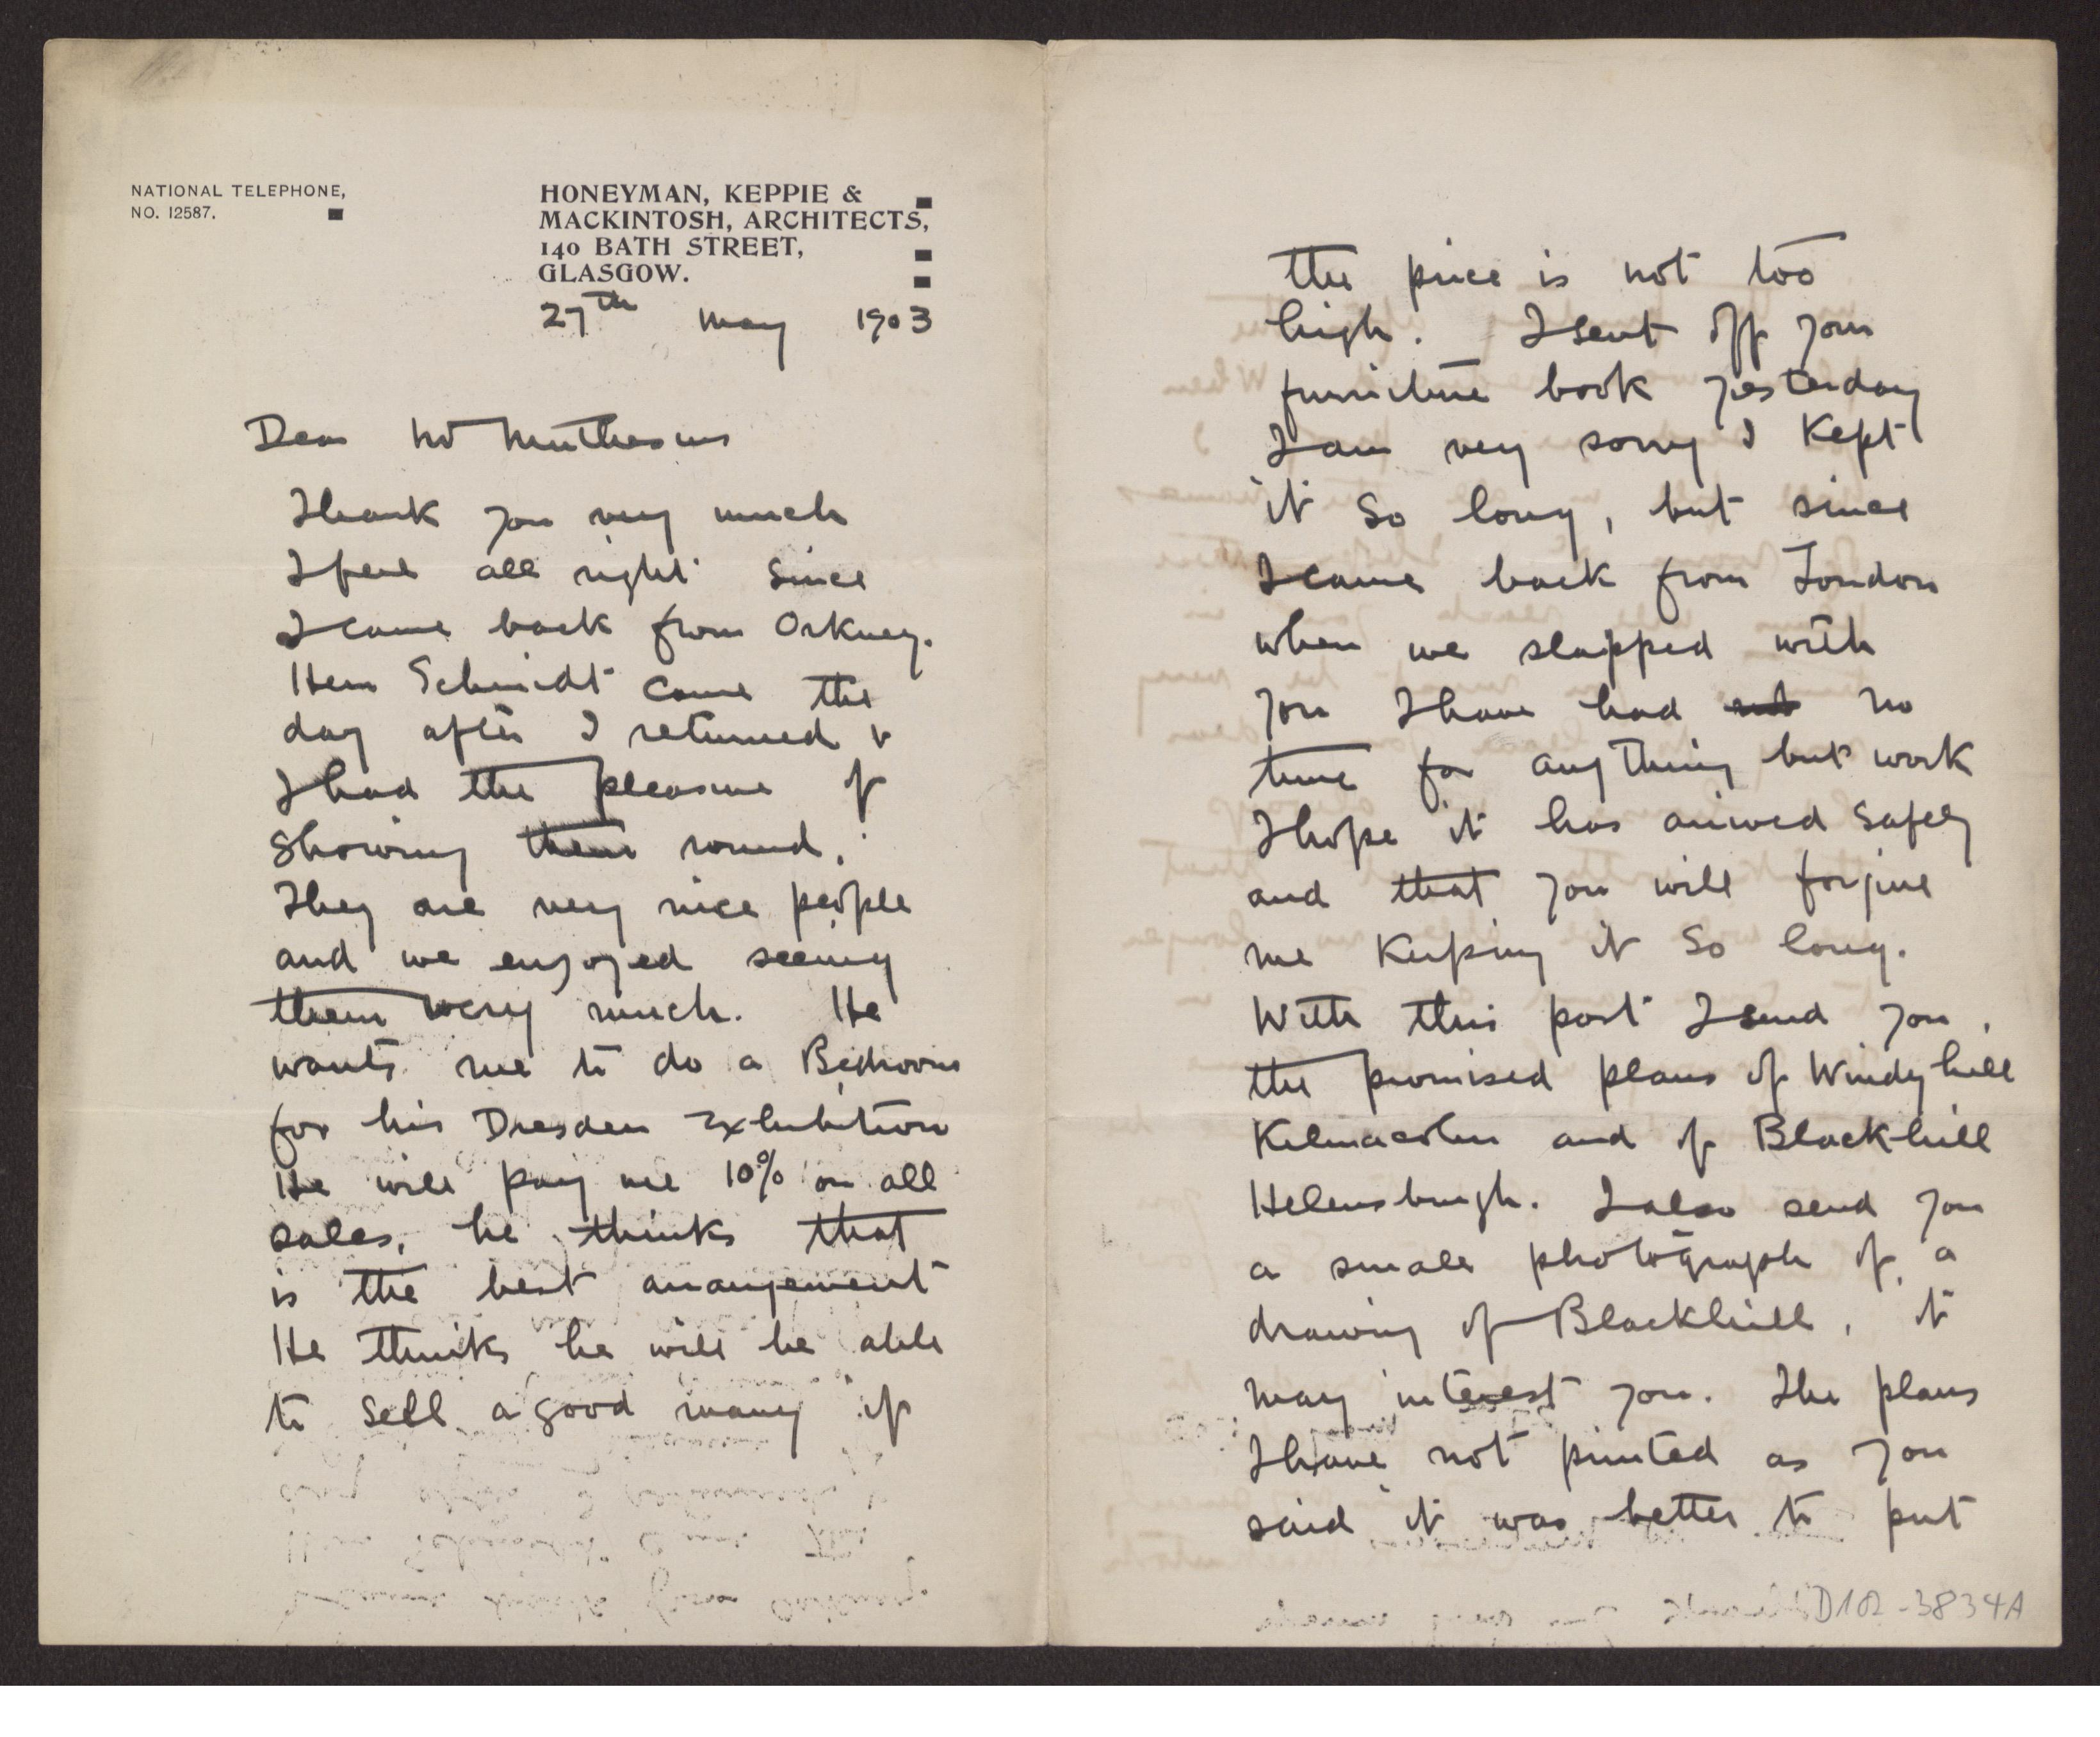 NATIONAL TELEPHONE,
NO. 12587.
HONEYMAN, KEPPIE &
MACKINTOSH, ARCHITECTS,
140 BATH STREET,
GLASGOW.
27th May 1903
Dear Mr Muthesius
Thank you very much
I feel all right since
I came back from Orkney.
Herr Schmidt came the
day after I returned &
I had the pleasure of
showing them round.
They are very nice people
and we enjoyed seeing
them very much. He
wants me to do a Bedroom
for his Dresden Exhibition
He will pay me 10% on all
sales, he thinks that
is the best arrangement
He thinks he will be able
to sell a good many if
the price is not too
high. I sent off your
furniture book yesterday
I am very sorry I kept
it so long, but since
I came back from London
when we stopped with
you I have had not no
time for anything but work
I hope it has arrived safely
and that you will forgive
me keeping it so long.
With this post I send you
the promised plans of Windyhill
Kilmacolm and of Blackhill
Helensburgh. I also send you
a small photograph of a
drawing of Blackhill, it
may interest you. The plans
I have not printed as you
said it was better to put
D102-3834A